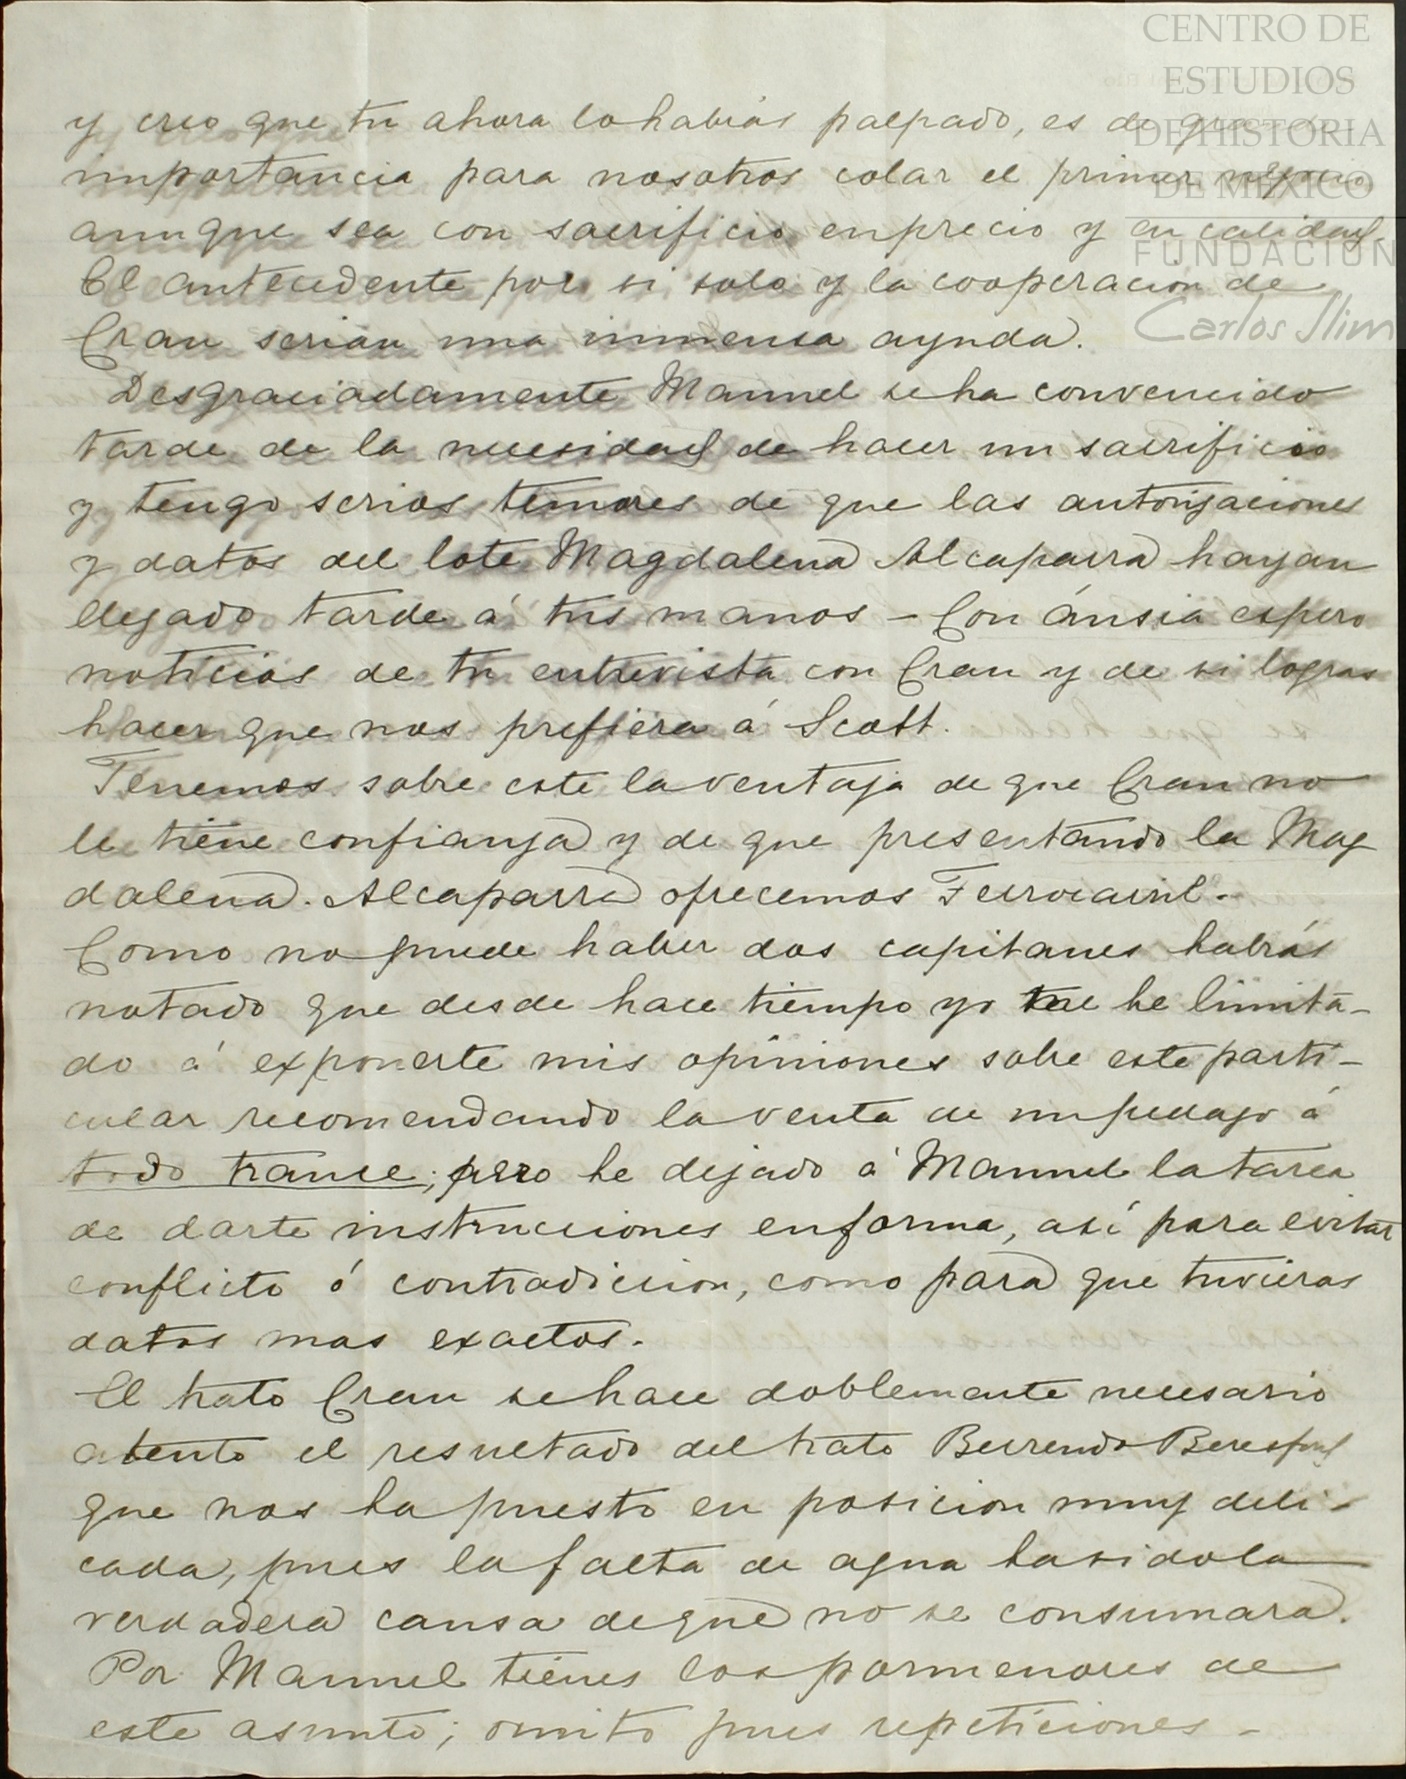 CENTRO DE
ESTUDIOS
DE HISTORIA
DE MÉXICO
FUNDACIÓN
Carlos Slim
y creo que tu ahora lo habrás palpado, es de gran
importancia para nosotros colar el primer negocio
aunque sea con sacrificio en precio y en calidad.
El antecedente por si solo y la cooperación de
Cran serian una inmensa ayuda.
Desgraciadamente Manuel se ha convencido
tarde de la necesidad de hacer un sacrificio
y tengo serios temores de que las autorizaciones
y datos del lote Magdalena Alcaparra hayan
llegado tarde á tus manos – Con ánsia espero
noticias de tu entrevista con Cran y de si logras
hacer que nos prefiera á Scott.
Tenemos sobre este la ventaja de que Cran no
le tiene confianza y de que presentando la Mag
dalena. Alcaparra ofrecemos Ferrocarril.
Como no puede haber dos capitanes habrás
notado que desde hace tiempo yo me he limita-
do á exponerte mis opiniones sobre este parti-
cular recomendando la venta de un pedazo á
todo trance; pero he dejado á Manuel la tarea
de darte instrucciones en forma, así para evitar
conflicto ó contradiccion, como para que tuvieras
datos mas exactos.
El trato Cran se hace doblemente necesario
atento el resultado del trato Berrendo Beresford
que nos ha puesto en posicion muy deli-
cada, pues la falta de agua ha sido la
verdadera causa de que no se consumara.
Por Manuel tienes los pormenores de
este asunto; omito pues repeticiones –